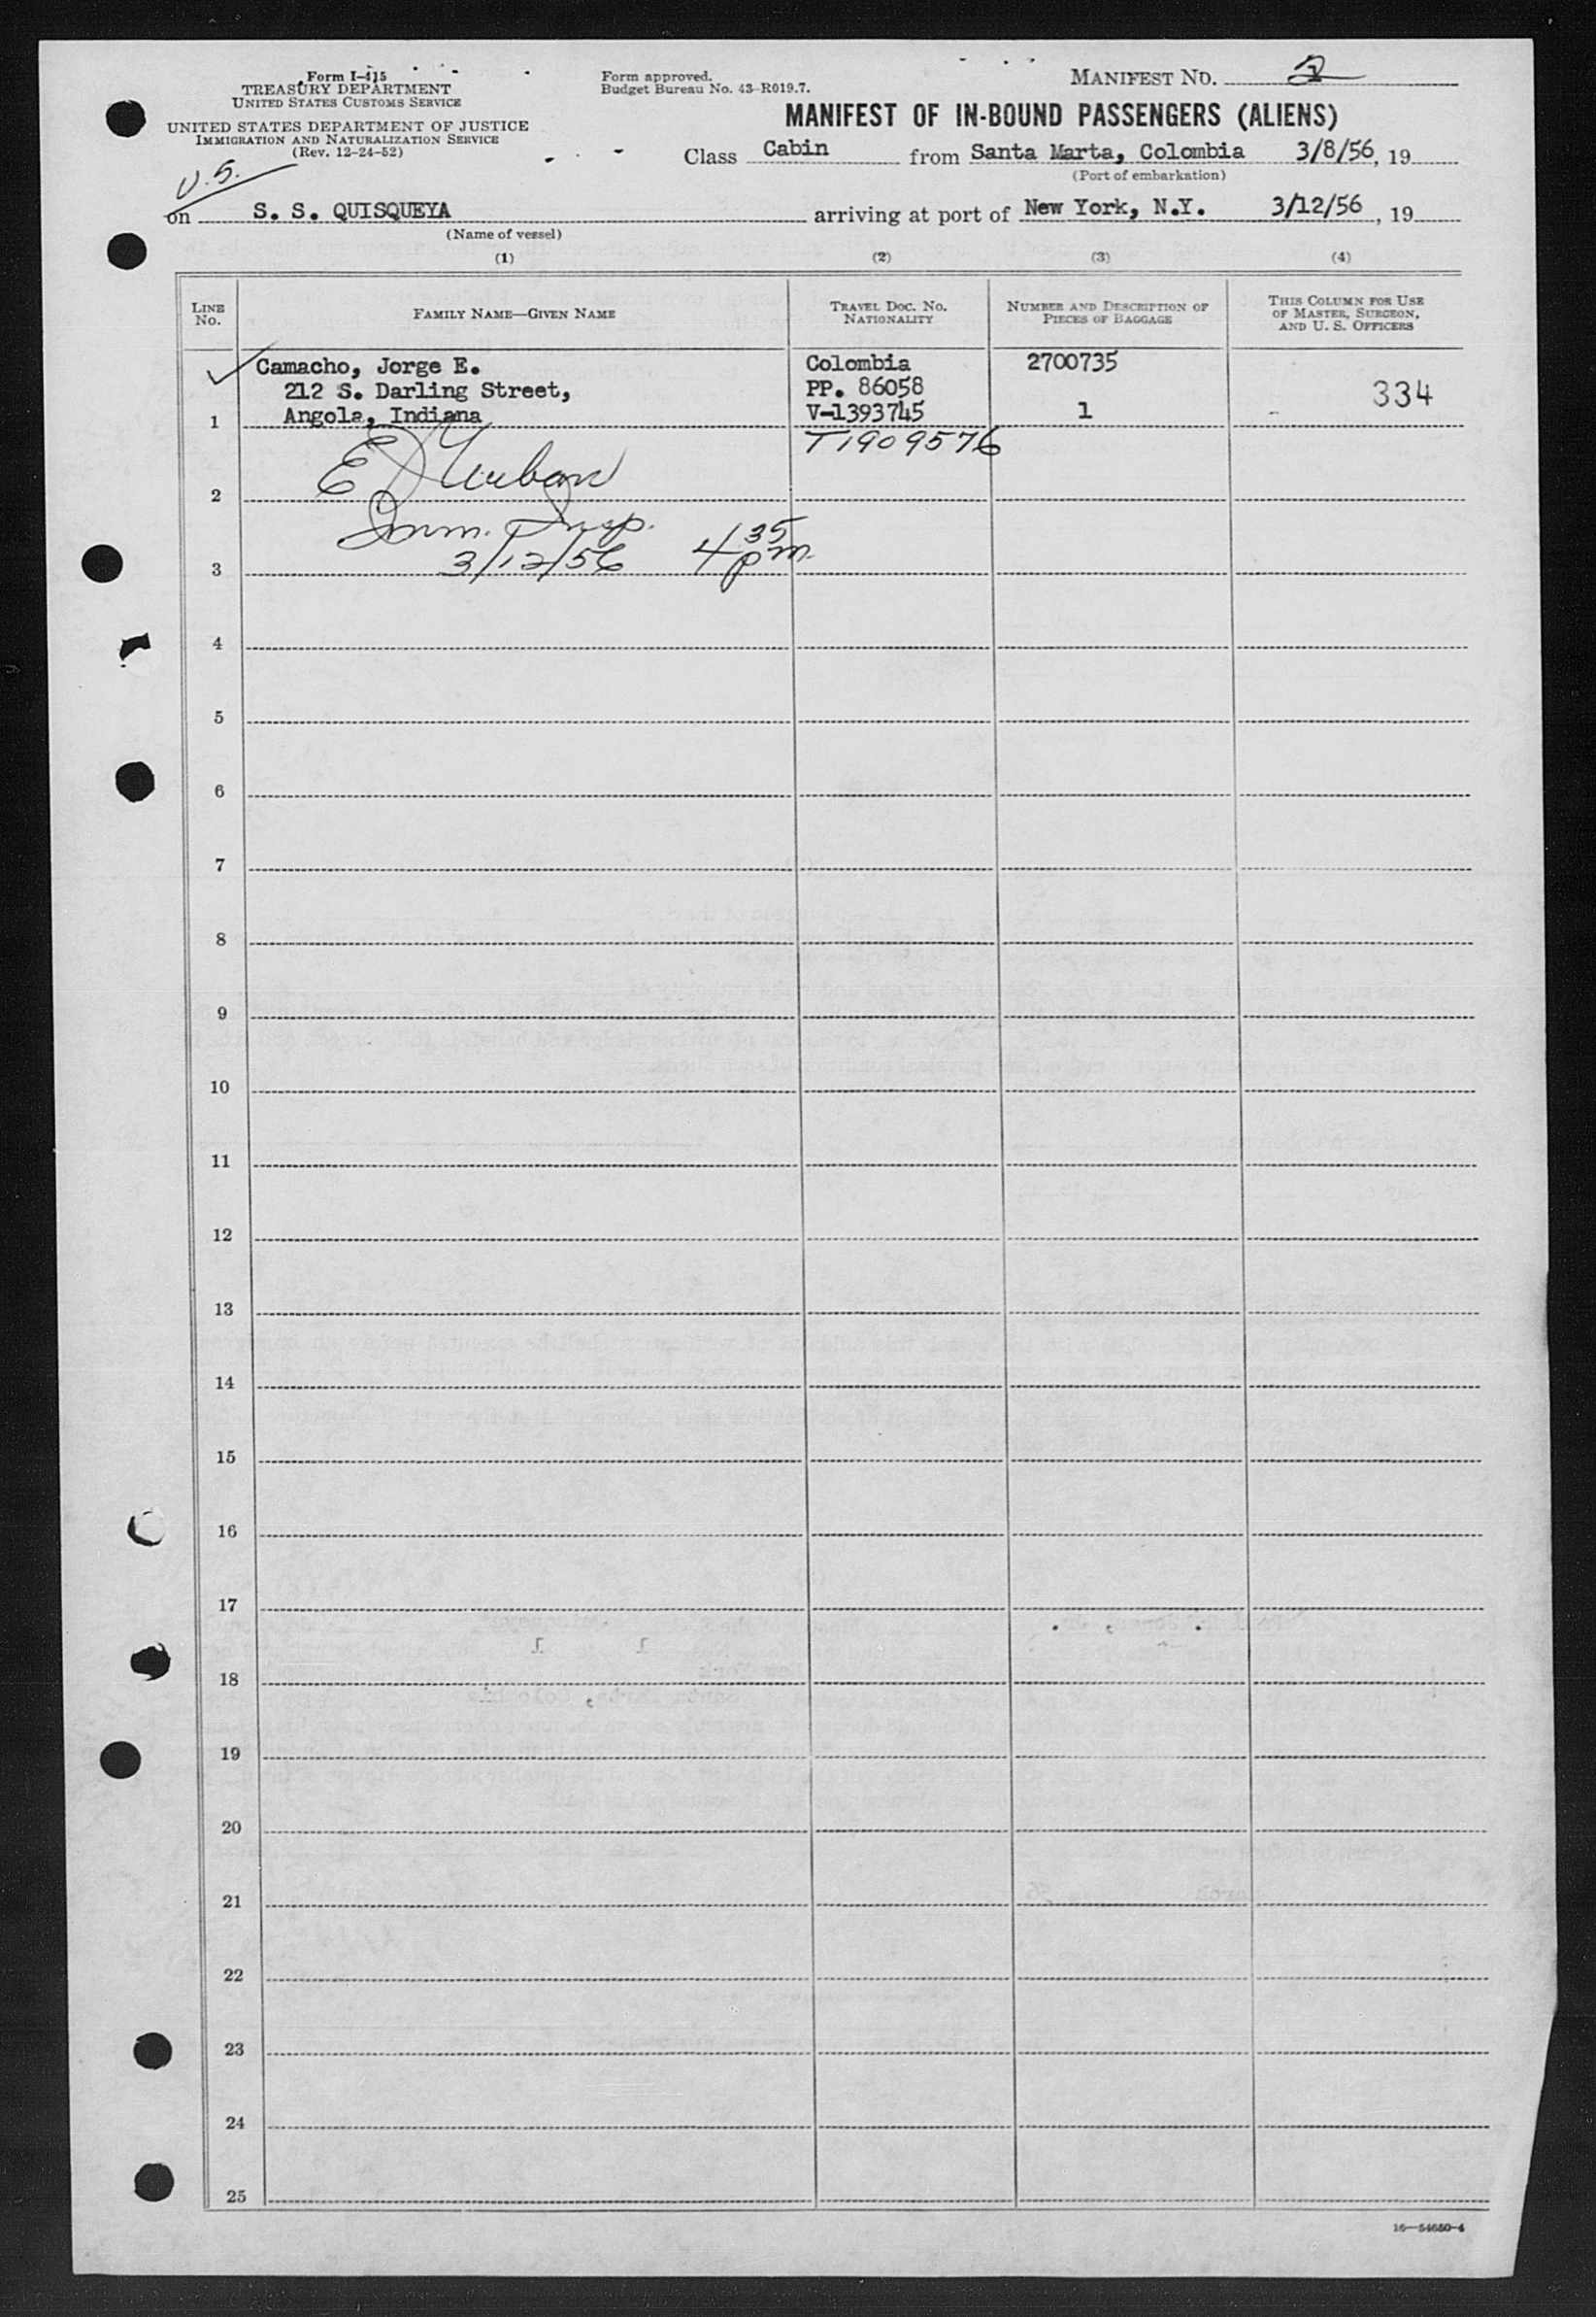 Form I-415
TREASURY DEPARTMENT
UNITED STATES CUSTOMS SERVICE
UNITED STATES DEPARTMENT OF JUSTICE
IMMIGRATION AND NATURALIZATION SERVICE
(Rev. 12-24-52)
Form approved.
Budget Bureau No. 43-R019.7.
MANIFEST NO. 2
MANIFEST OF IN-BOUND PASSENGERS (ALIENS)
Class Cabin from Santa Marta, Colombia 3/8/56, 19
(Port of embarkation)
U.S.
on S. S. QUISQUEYA arriving at port of New York, N.Y. 3/12/56, 19
(Name of vessel)
(1) (2) (3) (4)
LINE NO. FAMILY NAME—GIVEN NAME TRAVEL DOC. NO. NATIONALITY NUMBER AND DESCRIPTION OF PIECES OF BAGGAGE THIS COLUMN FOR USE OF MASTER, SURGEON, AND U. S. OFFICERS
Camacho, Jorge E. Colombia 2700735
212 S. Darling Street, PP. 86058 334
1 Angola, Indiana V-1393745 1
T1909576
2 E
Imm. Insp.
3 3/12/56 4 35 pm.
4
5
6
7
8
9
10
11
12
13
14
15
16
17
18
19
20
21
22
23
24
25
16—54650-4